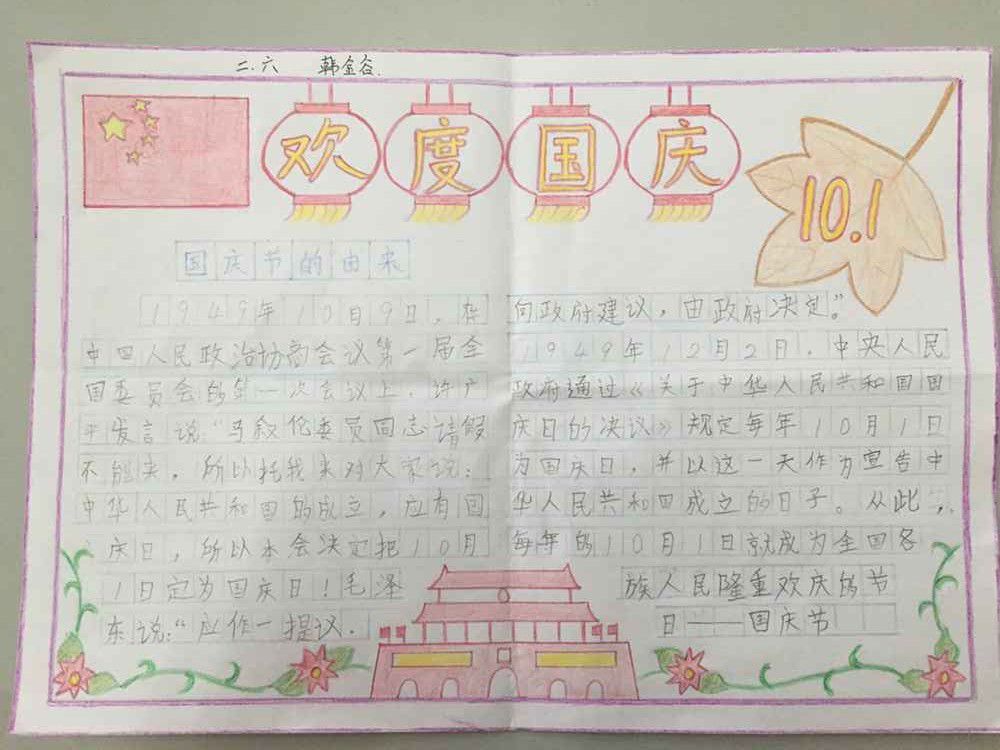 二.六 韩金谷.
欢度国庆
10.1
国庆节的由来
1949年10月9日，在
中国人民政治协商会议第一届全
国委员会的第一次会议上，许广
平发言说：“马叙伦委员同志请假
不能来，所以托我来对大家说：
中华人民共和国的成立，应有国
庆日，所以本会决定把10月
1日定为国庆日！毛泽
东说：“应作一提议．
向政府建议，由政府决定。”
1949年12月2日，中央人民
政府通过《关于中华人民共和国国
庆日的决议》规定每年10月1日
为国庆日，并以这一天作为宣告中
华人民共和国成立的日子。从此，
每年的10月1日就成为全国各
族人民隆重欢庆的节
日——国庆节